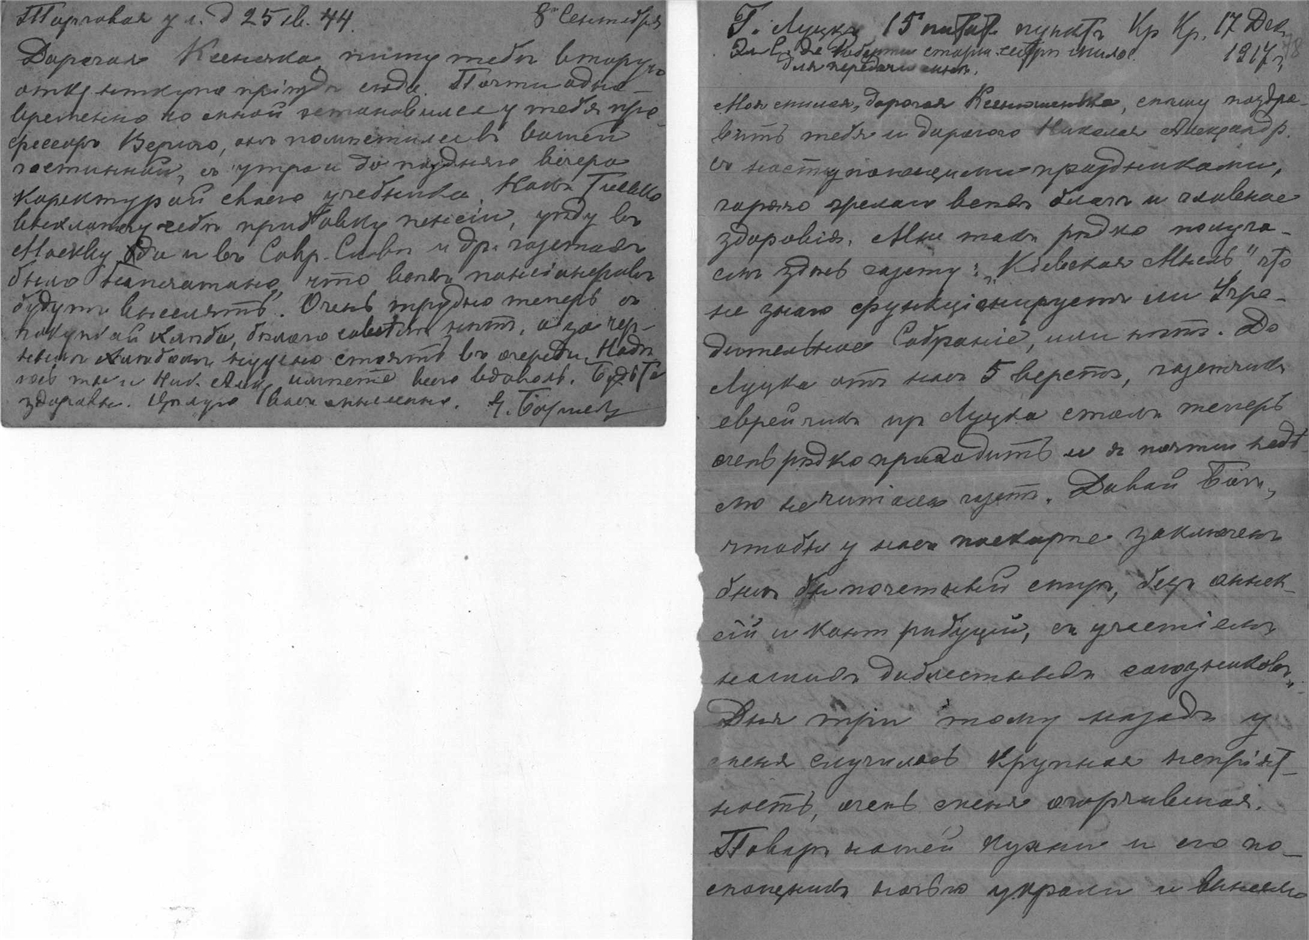 Торговая ул. д 25 кв. 44. 8го Сентября
Дорогая Ксенячка, пишу тебѣ вторую
открытку по прiѣздѣ сюда. Почти одно-
временно со мной остановился у тебя про-
фессоръ Верiго, онъ помѣстился въ вашей
гостинной, съ утра и до поздняго вечера
коректурой своего учебника. Какъ только
выхлопочу себѣ прибавку пенсiи, уѣду въ
Москву, да и въ Совр. Словѣ и др. газетахъ
было напечатано, что всѣхъ пансiонеровъ
будутъ выселять. Очень трудно теперь съ
покупкой хлѣба, бѣлаго совсѣмъ нѣтъ, а за чер-
нымъ хлѣбомъ нужно стоять въ очереди. Надѣ
юсь ты и Ник. Алек. имѣете всего вдоволь. Будьте
здоровы. Цѣлую Васъ
Г. Луцкъ 15 питат. пунктъ Кр Кр. 17 Дек.
старш. сестрѣ
для передачи 1917 г.
Моя милая, дорогая Ксенюшенька, спѣшу поздра-
вить тебя и дорогого Николая Александр.
съ наступающими праздниками,
горячо желаю всѣхъ благъ и главное
здоровiя. Мы такъ рѣдко получа-
емъ здѣсь газету: „Кiевская Мысль" что
не знаю функцiонируетъ ли Учре-
дительное Собранiе, или нѣтъ. До
Луцка отъ насъ 5 верстъ, газетчикъ
еврейчикъ изъ Луцка сталъ теперь
очень рѣдко приходить и я почти недѣ-
лю не читаемъ газетъ. Давай Богъ,
чтобы у насъ поскорѣе заключенъ
былъ бы почетный миръ, безъ аннек-
сiй и контрибуцiй, съ участiемъ
нашихъ доблестныхъ союзниковъ.
Дня три тому назадъ у
меня случилась крупная непрiят-
ность, очень меня огорчившая.
Поваръ нашей кухни и его по-
мощникъ ночью украли и вынесли